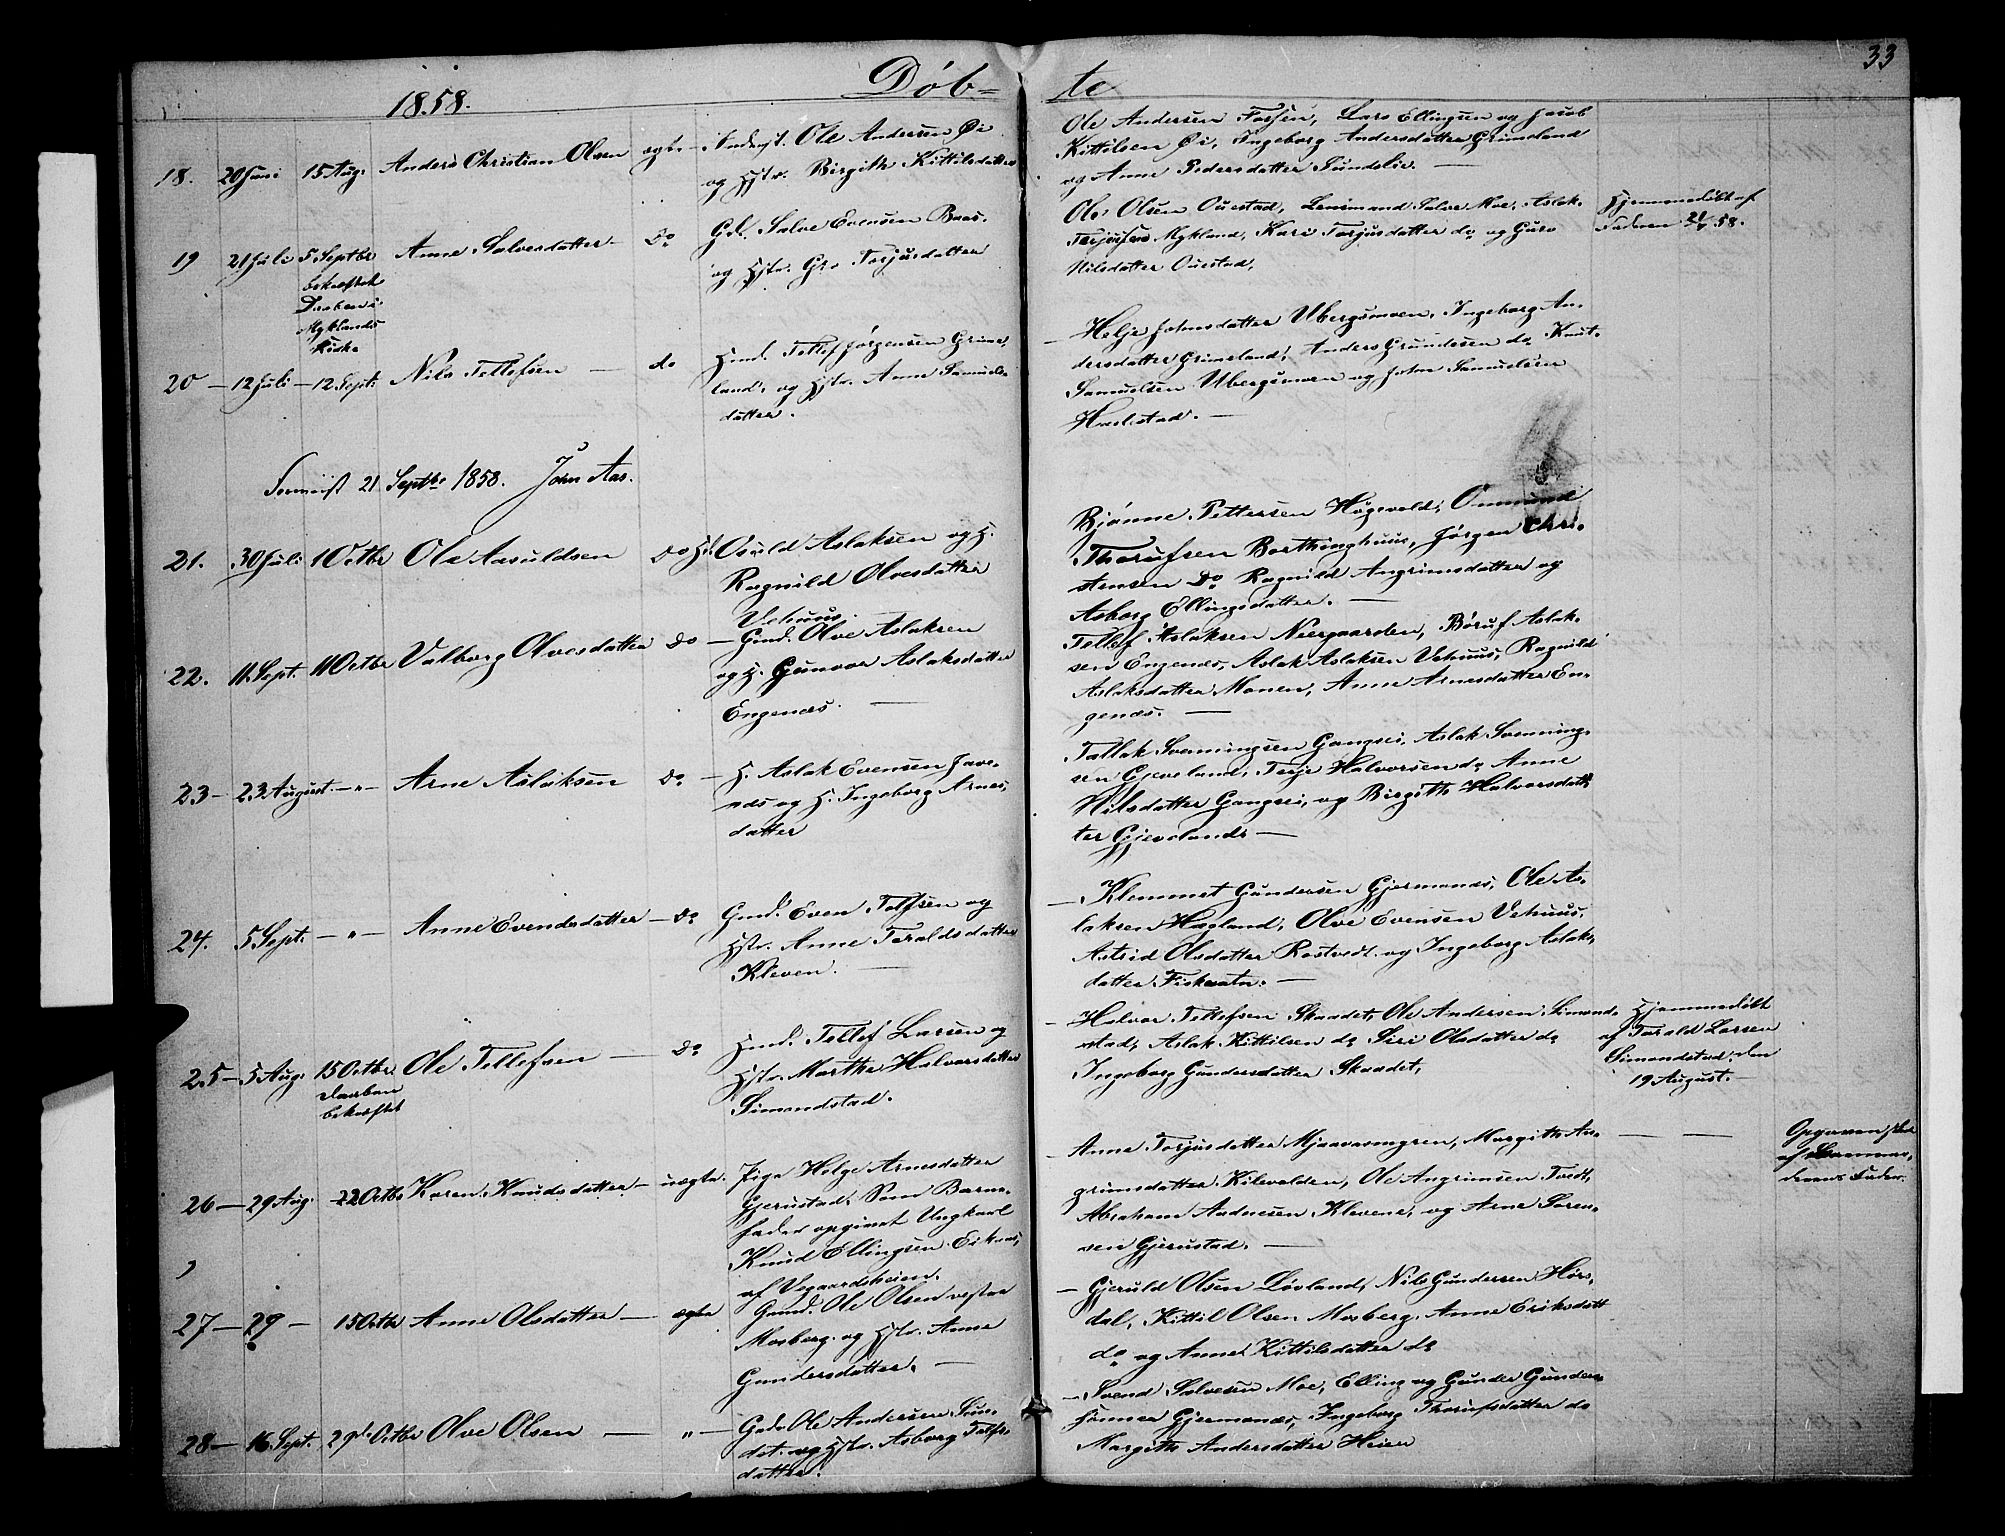 33
1858. Døb= te
18. 20 Juni 15 Aug. Anders Christian Olsen ægte Ole Andersen Øi
og Hstr. Birgith Kittilsdatter
Ole Andersen Fossen, Lars Ellingsen og Jacob
Kittilsen Øi, Ingeborg Andersdatter Grimeland
og Anne Pedersdatter Sundelie. —
19 21 Juli 5 Septbr Anne Salvesdatter — Do Gd. Salve Evensen Baas.
bekræftet
Daaben i
Myklands
Kirke
og Hstr. Gro Torjusdatter
Ole Olsen Ouestad, Lensmand Salve Moe, Aslak
Terjesen Mykland, Kari Torjusdatter do og Guro
Nilsdatter Ouestad,
Hjemmedøbt af
Faderen 21/7 58.
20 — 12 Juli — 12 Sept. Nils Tellefsen — do Hmd. Tellef Jørgensen Grime,
land, og Hstr. Anne Samuels-
datter.
— Helje Johnsdatter Ubergsmoen, Ingeborg An-
dersdatter Grimeland, Anders Gundesen do Knut
Samuelsen Ubergsmoen og John Samuelsen
Haslestad. —
21 Septbr 1858. John Aas.
21. 30 Juli 1 Octbr Ole Aasuldsen Do Hd. Osuld Aslaksen og H.
Ragnild Olvesdatter
Vehuus.
Bjønne Pettersen Høgevold, Onnund
Thorufsen Borthinghuus, Jørgen Chri-
stensen Do Ragnild Angrimsdatter og
Asborg Ellingsdatter. —
22. 11. Sept. 1 Octbr Valborg Olvesdatter do — Gmd. Olve Aslaksen
og H. Gunvor Aslaksdatter
Engenæs. —
Tellef Aslaksen Neergaarden, Børuf Aslak-
sen Engenæs, Aslak Aslaksen Vehuus, Ragnild
Aslaksdatter Monen, Anne Arnesdatter En-
genæs. —
23 — 23 August. — " — Arne Aslaksen Do — H. Aslak Evensen Jave-
næs og H. Ingeborg Arnes,
datter
Tallak Svenningsen Gangsei, Aslak Svenning-
sen Gjeveland, Terje Halvorsen do Anne
Nilsdatter Gangsei, og Birgithe Halvorsdatt
ter Gjeveland —
24. 5 Sept. — " — Anne Evendsdatter — do Gmd. Even Tolfsen og
Hstr. Anne Taraldsdatter
Kleven. —
— Klemmet Gundersen Gjermanes, Ole As-
laksen Hagland, Olve Evensen Vehuus,
Astrid Olsdatter Rostvedt og Ingeborg Aslaks,
datter Fiskvatn. —
25 — 5 Aug. 15 Octbr. Ole Tellefsen — do Hmd. Tellef Larsen og
Daaben
bekræftet
Hstr. Marthe Halvorsdatter
Simonstad.
— Halvor Tellefsen Skaadet, Ole Andersen Simond-
stad, Aslak Kittilsen do Siri Olsdatter do
Ingeborg Gundersdatter Skaadet,
Hjemmedøbt
af Torald Larsen
Simondstad den
19 August. —
26 — 29 Aug. 22 Octbr Karen Knudsdatter — uægte. Pige Helge Arnesdatter
Gjerustad. Som Barne-
fader opgivet Ungkarl
Knud Ellingsen Eiknæs,
af Vegaardsheien.
— Anne Torjusdatter Mjaavasmyren, Margith An-
grimsdatter Kilevolden, Ole Angrimsen Tvedt,
Abraham Andersen Klevene, og Arne Soren-
sen Gjerustad. —
— —
Opgaven skeet
af
Fader.
27 — 29 — 15 Octbr Anne Olsdatter — ægte Gmd. Ole Olsen vestre
Mosberg og Hstr. Anne
Gundersdatter. —
— Gjeruld Olsen Løvland, Nils Gundersen Hørs,
dal, Kittil Olsen Mosberg, Anne Eriksdatt
do og Anne Kittilsdatter do
28 — 16 Sept. 29de Octbr Olve Olsen — " — Gmd. Ole Andersen Sun-
det og Hstr. Asborg Tolfs-
datter.
— Svend Salvesen Moe, Elling og Gunder Gunders-
sønner Gjermanes, Ingeborg Thorufsdatter do
Margith Andersdatter Heien